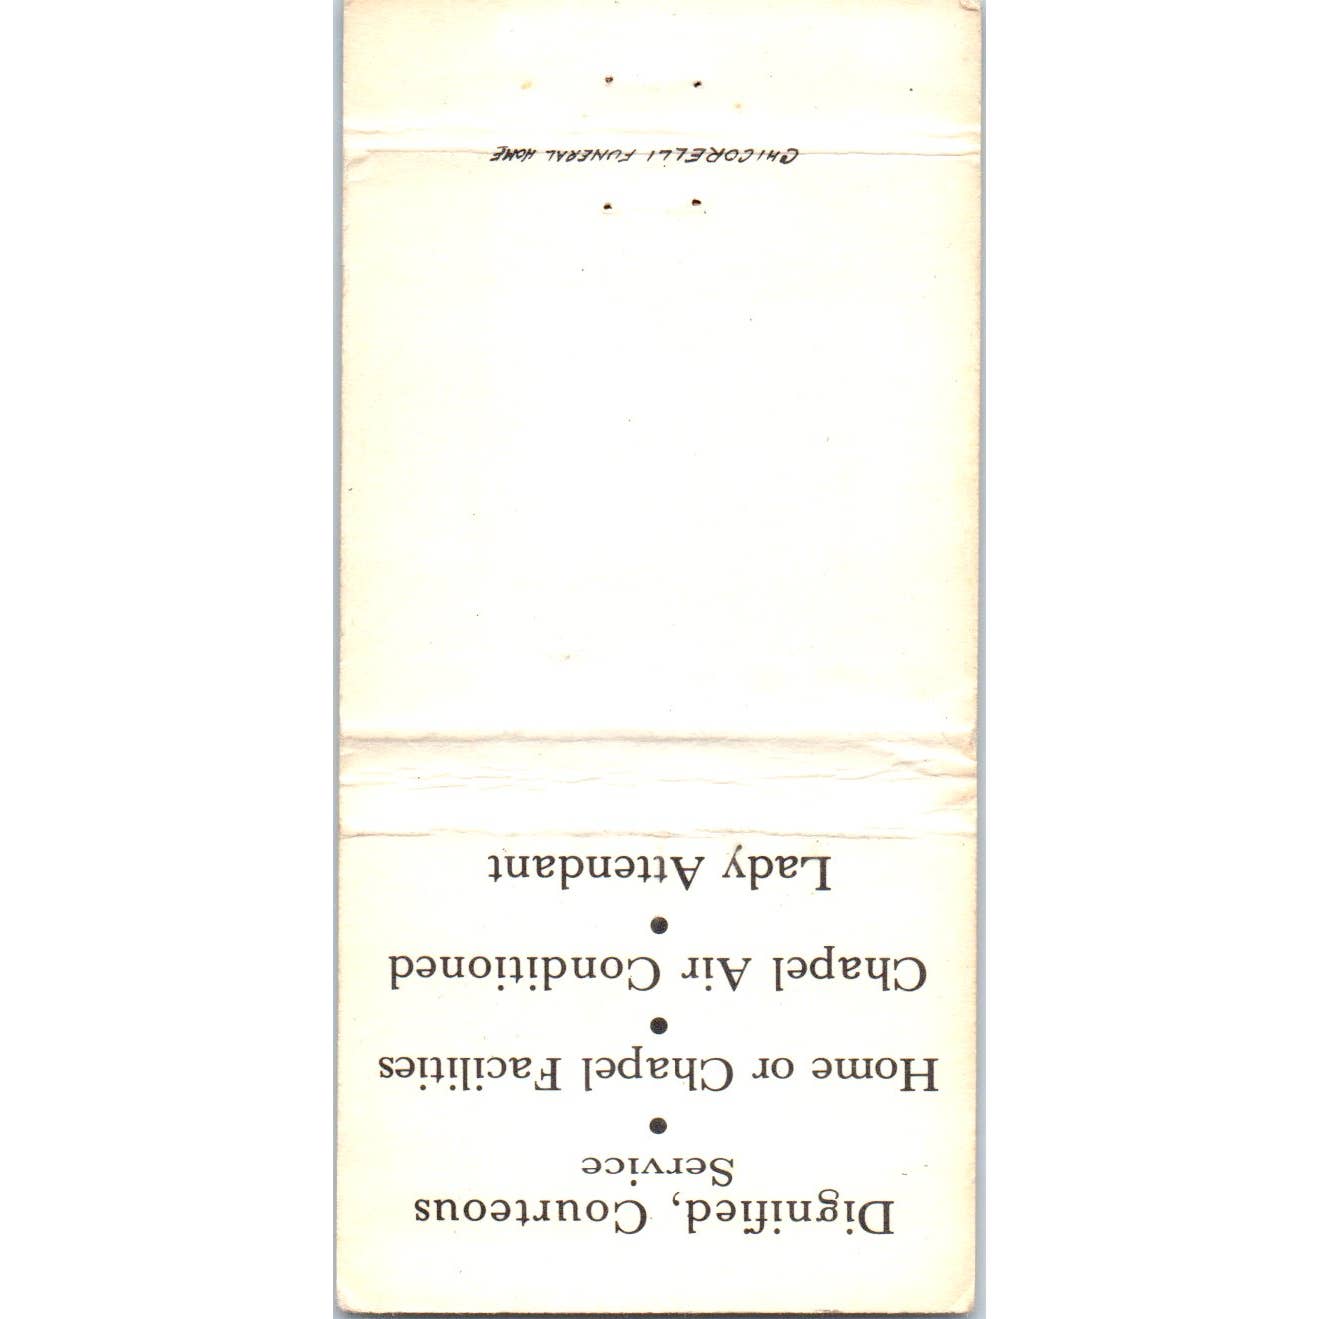 Dignified, Courteous
Service
•
Home or Chapel Facilities
•
Chapel Air Conditioned
•
Lady Attendant
CHICORELLI FUNERAL HOME